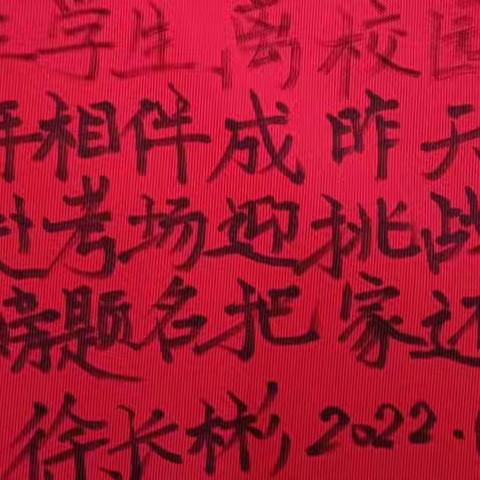 学生离校园
相伴成昨天
赴考场迎挑战
榜题名把家还
徐长彬，2022.